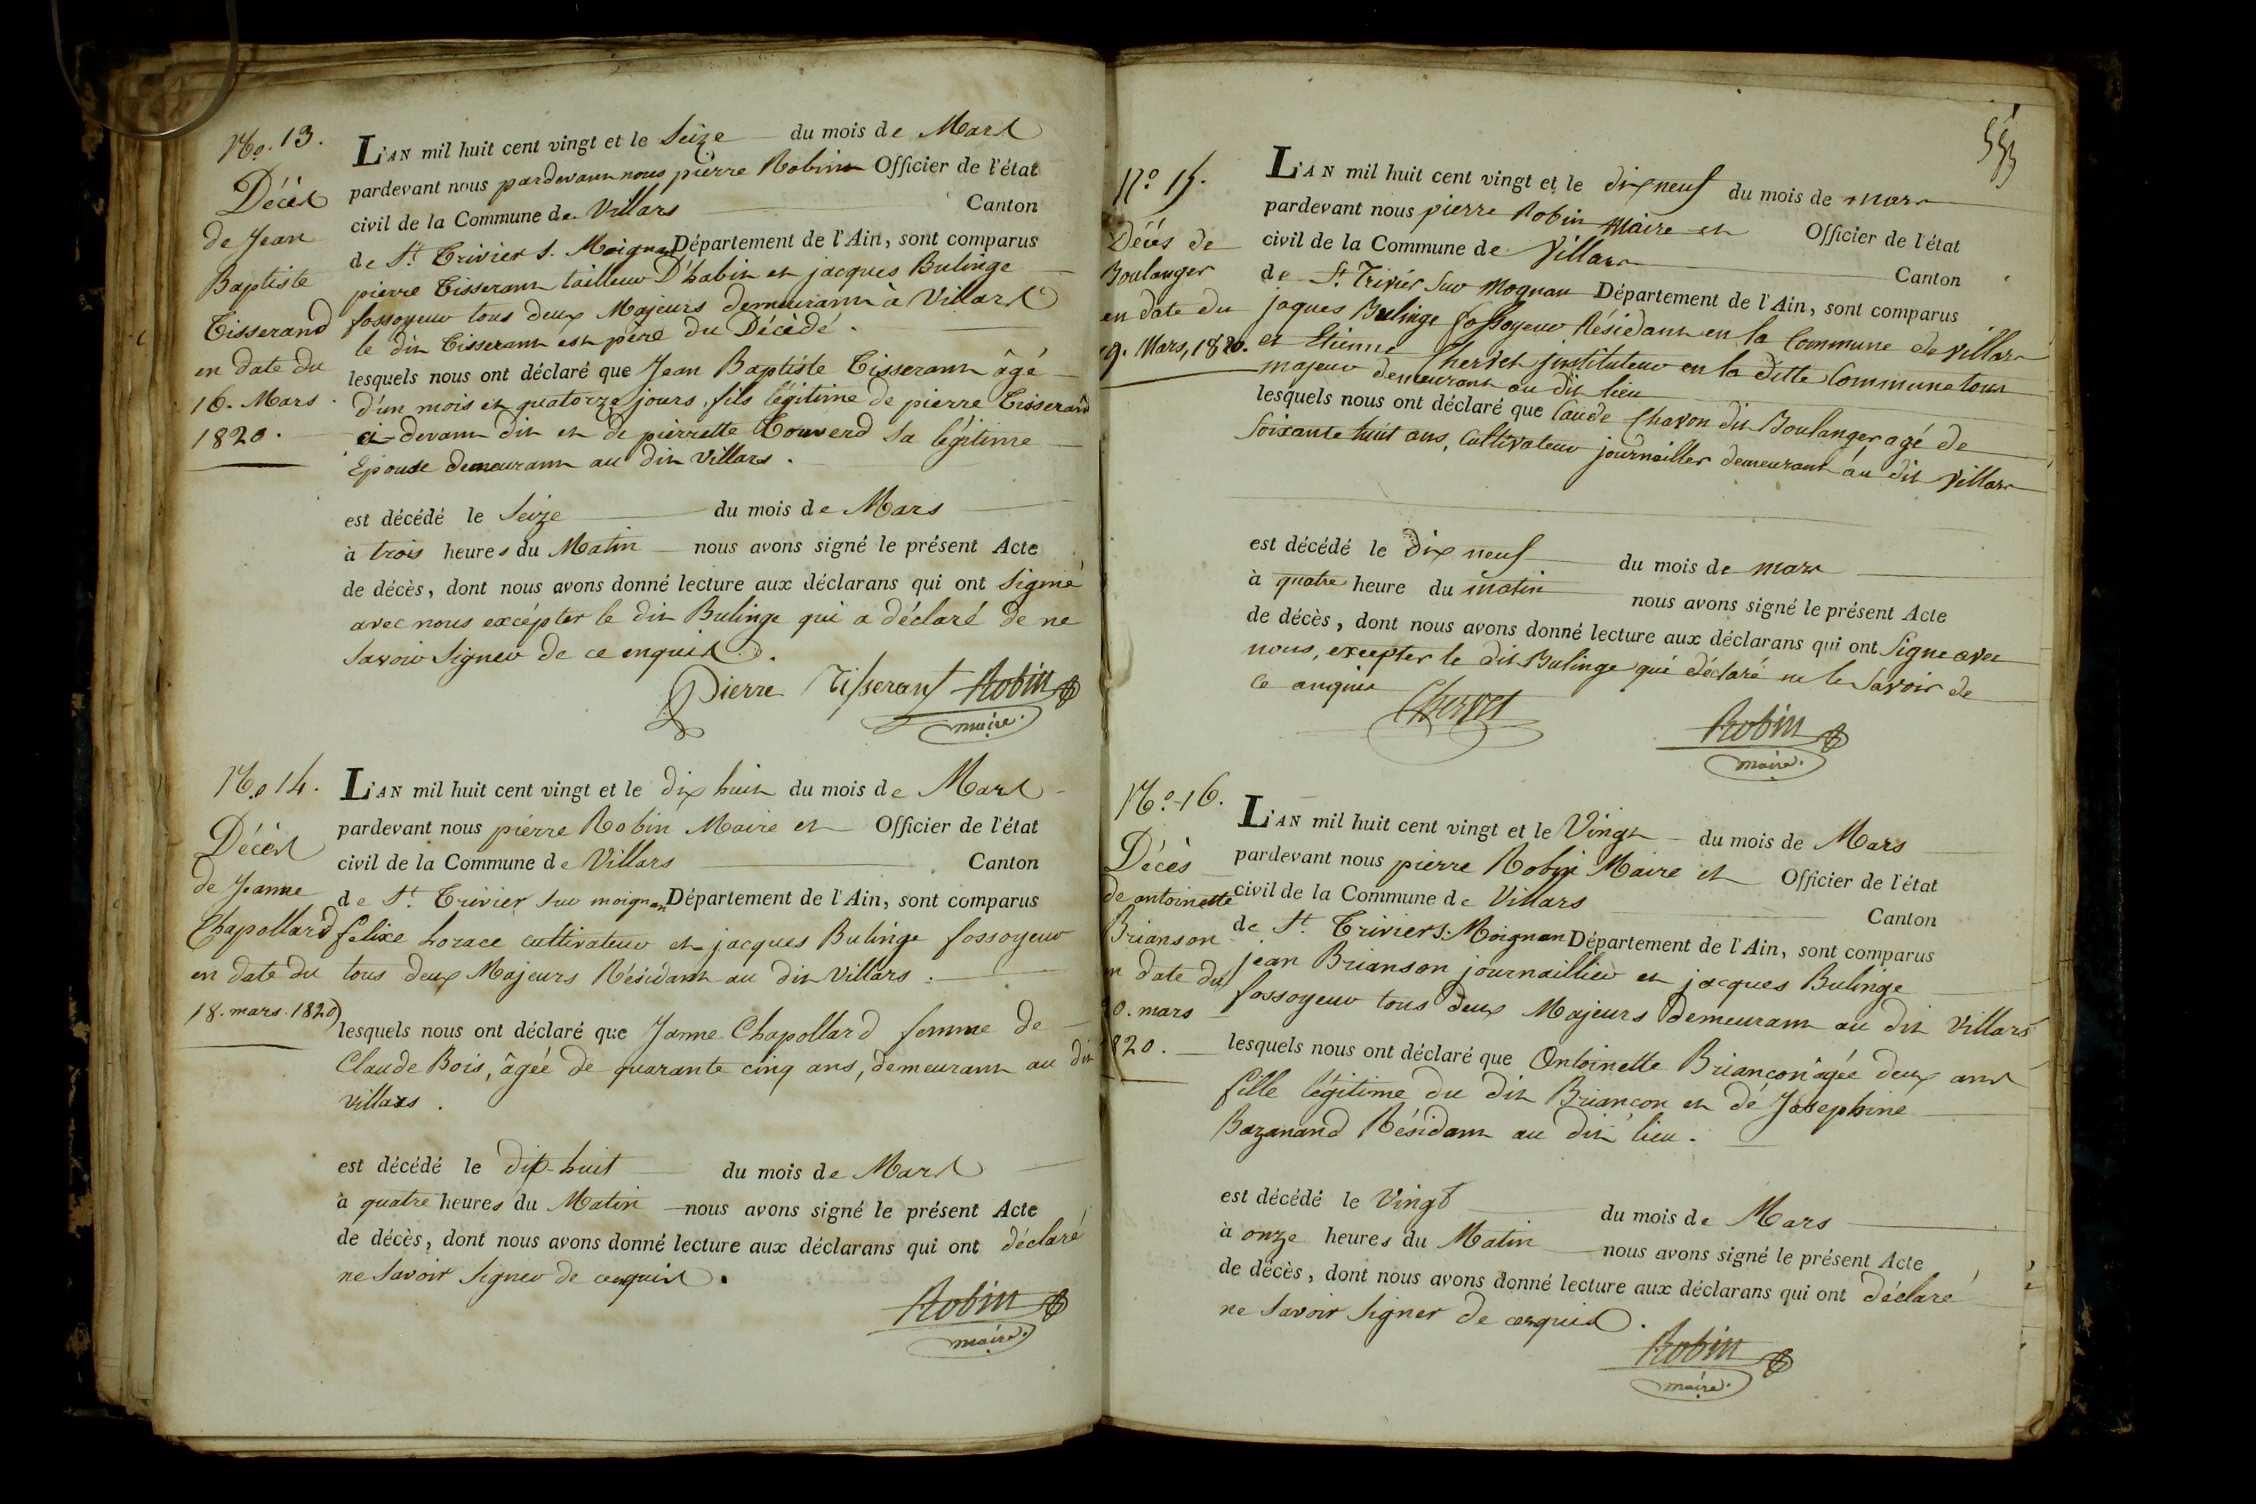 No. 13.
Décès
de Jean
Baptiste
Tisserand
en date du
16. Mars
1820.
L'AN mil huit cent vingt et le Seize du mois de Mars
pardevant nous pardevant nous pierre Robin Officier de l'état
civil de la Commune de Villars Canton
de St. Trivier S. Moignan Département de l'Ain, sont comparus
pierre Tisserant tailleur D'habit et jacques Bulinge
fossoyeur tous deux Majeurs demeurant à Villars
le dit Tisserant est père du Décédé.
lesquels nous ont déclaré que Jean Baptiste Tisserant âgé
d'un mois et quatorze jours, fils légitime de pierre Tisserand
ci-devant dit et de pierrette Touverd sa légitime
Epouse demeurant au dit Villars.
est décédé le Seize du mois de Mars
à trois heures du Matin nous avons signé le présent Acte
de décès, dont nous avons donné lecture aux déclarans qui ont Signé
avec nous excépter le dit Bulinge qui a déclaré de ne
Savoir Signer de ce enquis.
Pierre Tisserant Robin
maire.
No 14.
Décès
de Jeanne
Chapollard
en date du
18. mars. 1820
L'AN mil huit cent vingt et le dix huit du mois de Mars
pardevant nous pierre Robin Maire et Officier de l'état
civil de la Commune de Villars Canton
de St. Trivier Sur moignan Département de l'Ain, sont comparus
felixe horace cultivateur et jacques Bulinge fossoyeur
tous deux Majeurs Résidant au dit Villars.
lesquels nous ont déclaré que Janne Chapollard femme de
Claude Bois, âgée de quarante cinq ans, demeurant au dit
Villars.
est décédé le dix-huit du mois de Mars
à quatre heures du Matin nous avons signé le présent Acte
de décès, dont nous avons donné lecture aux déclarans qui ont déclaré
ne Savoir Signer de cenquis.
Robin
maire.
No 15.
Décés de
Boulanger
en date du
19. Mars, 1820.
L'AN mil huit cent vingt et le dix neuf du mois de mars
pardevant nous pierre Robin Maire et Officier de l'état
civil de la Commune de Villars Canton
de St. Trivier Sur Mognan Département de l'Ain, sont comparus
jaques Bulinge fossoyeur Résidant en la Commune de Villars
et Etienne Chervet jnstituteur en la ditte Commune tous
majeur demeurant au dit lieu
lesquels nous ont déclaré que Claude Chavon dit Boulanger agé de
Soixante huit ans, Cultivateur journailler demeurant au dit Villars
est décédé le dix neuf du mois de mars
à quatre heure du matin nous avons signé le présent Acte
de décès, dont nous avons donné lecture aux déclarans qui ont Signe avec
nous, excepter le dit Bulinge qui déclaré ne le Savoir de
ce anquis
Chervet Robin
maire.
No 16.
Décès
de antoinette
Brianson
en date du
20. mars
1820.
L'AN mil huit cent vingt et le Vingt du mois de Mars
pardevant nous pierre Robin Maire et Officier de l'état
civil de la Commune de Villars Canton
de St. Trivier S. Moignan Département de l'Ain, sont comparus
jean Brianson journaillier et jacques Bulinge
fossoyeur tous deux Majeurs demeurant au dit Villars
lesquels nous ont déclaré que Antoinette Briançon agée deux ans
fille légitime du dit Briançon et dé Josephine
Bazanand Résidant au dit lieu.
est décédé le Vingt du mois de Mars
à onze heures du Matin nous avons signé le présent Acte
de décès, dont nous avons donné lecture aux déclarans qui ont déclaré
ne Savoir Signer de cenquis.
Robin
maire.